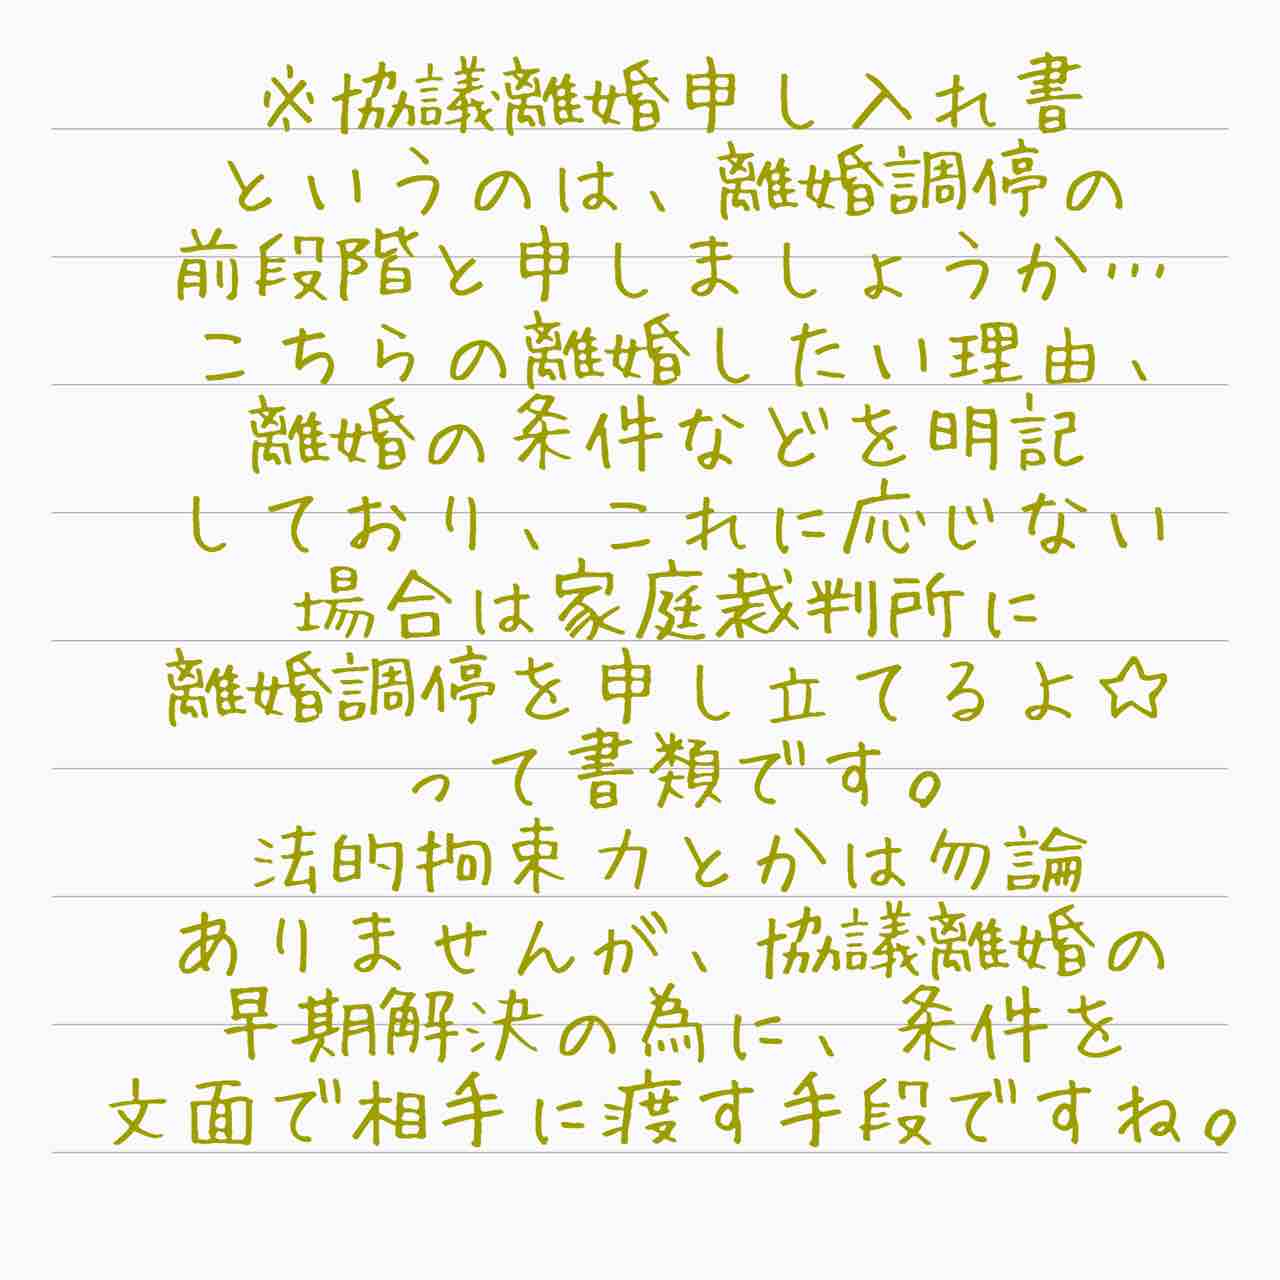 ※協議離婚申し入れ書
というのは、離婚調停の
前段階と申しましょうか…
こちらの離婚したい理由、
離婚の条件などを明記
しており、これに応じない
場合は家庭裁判所に
離婚調停を申し立てるよ☆
って書類です。
法的拘束力とかは勿論
ありませんが、協議離婚の
早期解決の為に、条件を
文面で相手に渡す手段ですね。